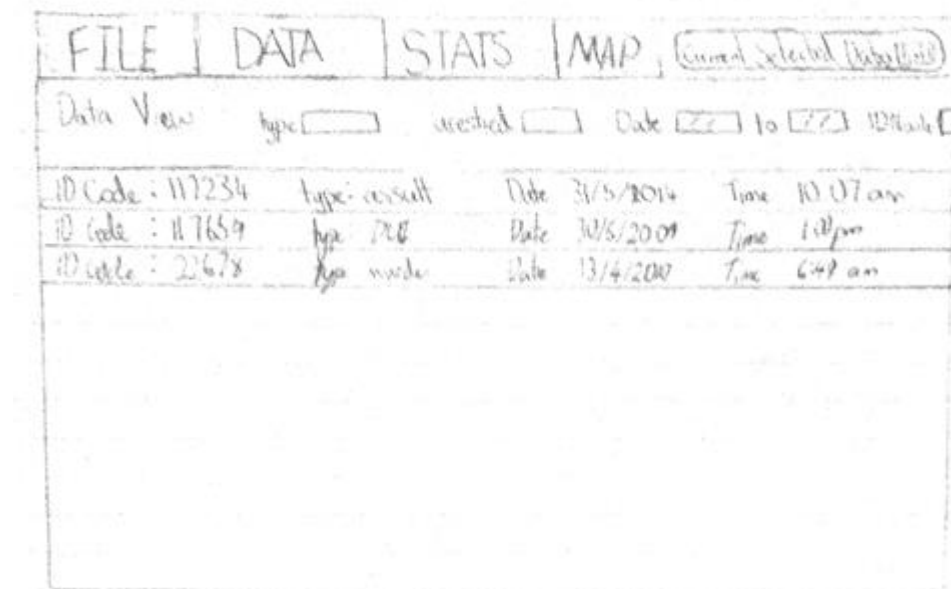 FILE DATA STATS MAP Current Selected
Data View type arested Date to
ID Code : 117234 type: assult Date 31/5/2014 Time 10:07am
ID Code : 117659 type: Date 30/5/2009 Time 1:00pm
ID Code : 22678 type Date 13/4/2010 Time 6:49 am